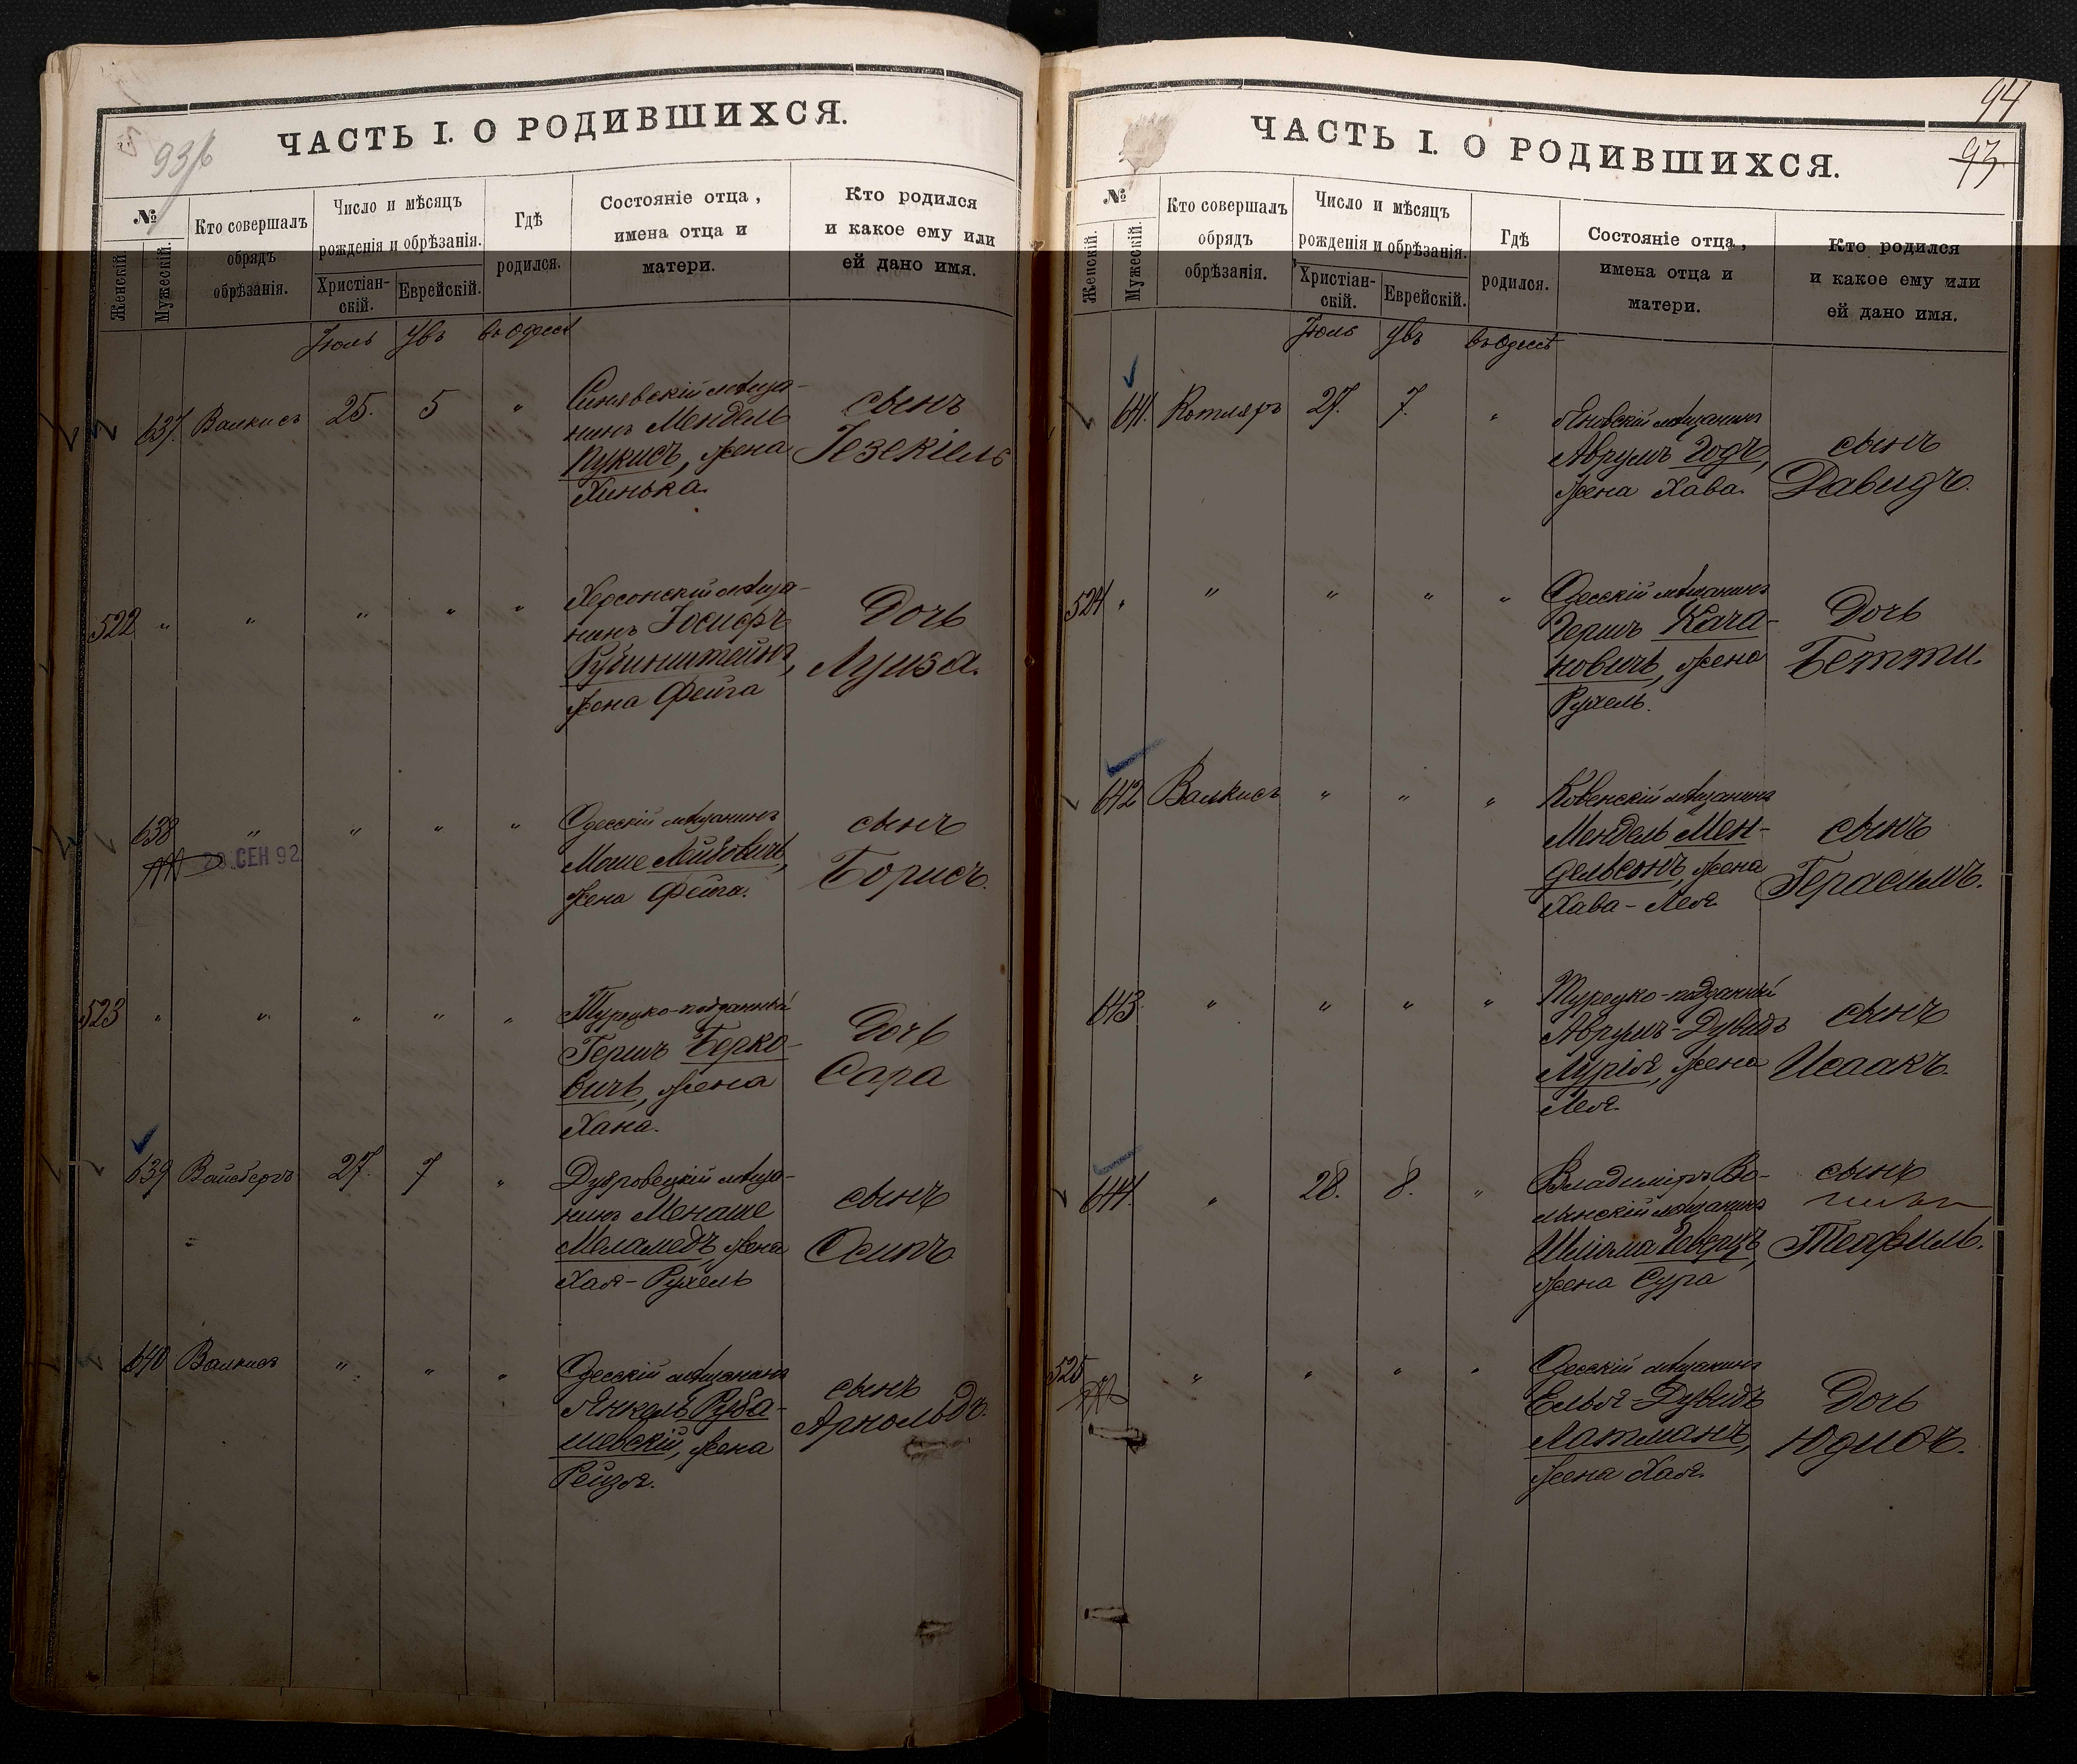 93/б
ЧАСТЬ I. О РОДИВШИХСЯ.
№
Женскій.
Мужескій.
Кто совершалъ
обрядъ
обрѣзанія.
Число и мѣсяцъ
рожденія и обрѣзанія.
Христіан-
скій.
Еврейскій.
Гдѣ
родился.
Состояніе отца,
имена отца и
матери.
Кто родился
и какое ему или
ей дано имя.
Іюль Увъ въ Одессѣ
637. Валкисъ 25. 5 " Синявскій мѣща-
нинъ Мендель
Кукисъ, жена
Хинька.
сынъ
Іезекіель
522 " " " " " Херсонскій мѣща-
нинъ Іосифъ
Рубинштейнъ,
жена Фейга
Дочь
Луиза.
638 " " " " Одесскій мѣщанинъ
20 СЕН 92
Моше Лейбовичъ,
жена Фейга.
сынъ
Борисъ.
523 " " " " " Турецко-подданный
Гершъ Берко-
вичъ, жена
Хана.
Дочь
Сара
639 Вайсбергъ 27. 7 " Дубровецкій мѣща-
нинъ Менаше
Меламедъ, жена
Хая-Рухель
сынъ
Осипъ
640 Валкисъ " " " Одесскій мѣщанинъ
Янкель Руба-
шевскій, жена
Рейзя.
сынъ
Арнольдъ.
94
93
ЧАСТЬ I. О РОДИВШИХСЯ.
№
Женскій.
Мужескій.
Кто совершалъ
обрядъ
обрѣзанія.
Число и мѣсяцъ
рожденія и обрѣзанія.
Христіан-
скій.
Еврейскій.
Гдѣ
родился.
Состояніе отца,
имена отца и
матери.
Кто родился
и какое ему или
ей дано имя.
Іюль Увъ въ Одессѣ
641. Котляръ 27. 7. " Яновскій мѣщанинъ
Аврумъ Годъ,
жена Хава.
сынъ
Давидъ.
524 " " " " " Одесскій мѣщанинъ
Гершъ Кага-
новичъ, жена
Рухель.
Дочь
Бетти.
642 Валкисъ " " " Ковенскій мѣщанинъ
Мендель Мен-
дельсонъ, жена
Хава-Лея.
сынъ
Герасимъ.
643. " " " " Турецко-подданный
Аврумъ-Дувидъ
Лурія, жена
Лея.
сынъ
Исаакъ.
644. " 28. 8. " Владиміръ Во-
лынскій мѣщанинъ
Шліома Геверцъ,
жена Сура
сынъ
Теофиль.
525 " " " " Одесскій мѣщанинъ
Елья-Дувидъ
Латманъ,
жена Хая.
Дочь
Юдиѳь.